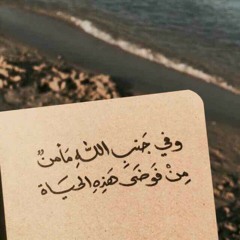 وفي جَنبِ اللّهِ مَأمنٌ
مِنْ فَوضَى هَذِهِ الحيَاة